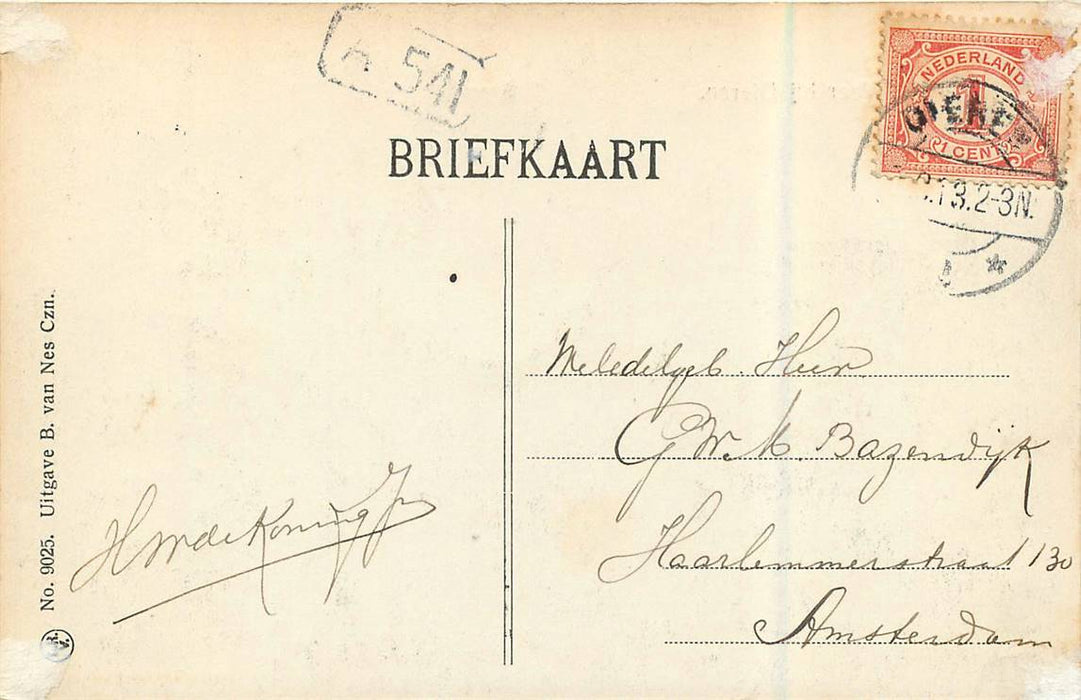 A 541
NEDERLAND
1
1 CENT
DIEREN
.13.2-3N.
BRIEFKAART
WelEdelgeb. Heer
G.W.M. Bazendijk
Haarlemmerstraat 130
Amsterdam
HW de Koning Jr
No. 9025. Uitgave B. van Nes Czn.